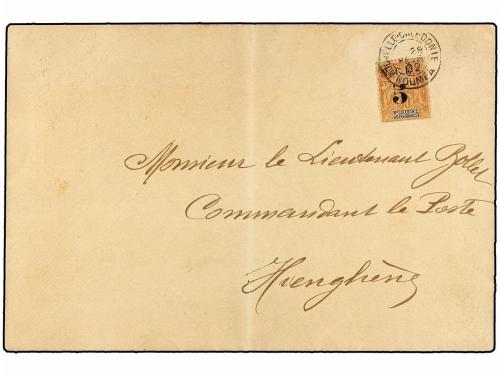 NOUVELLE-CALEDONIE
28
02
NOUMEA
5
Monsieur le Lieutenant Bollet
Commandant le Poste
Hienghène